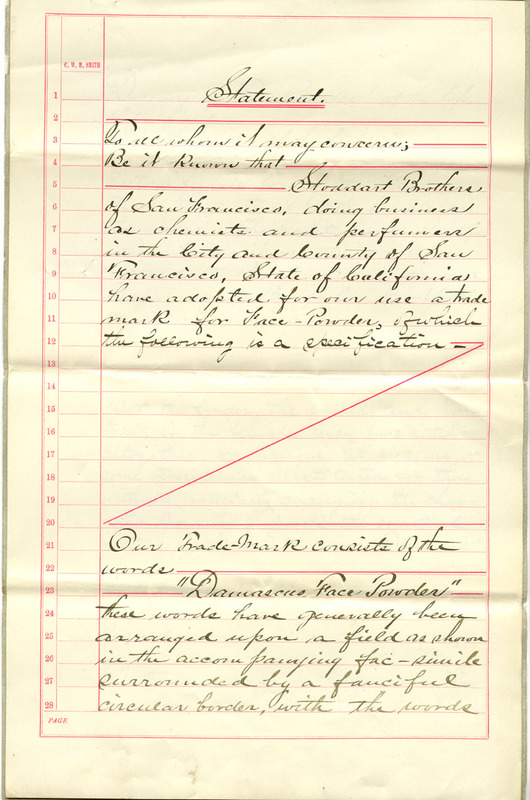 C. W. M. SMITH
Statement.
1
2
3 To all whom it may concern;
4 Be it Known that
5 Stoddart Brothers
6 of San Francisco, doing business
7 as chemists and perfumers
8 in the City and County of San
9 Francisco, State of California
10 have adopted for our use a trade
11 mark for Face-Powder, of which
12 the following is a specification -
13
14
15
16
17
18
19
20
21 Our Trade-Mark consists of the
22 words
23 "Damascus Face Powder"
24 these words have generally been
25 arranged upon a field as shown
26 in the accompanying fac-simile
27 surrounded by a fanciful
28 circular border, with the words
PAGE